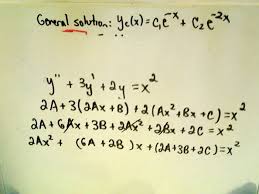 General solution: y_c(x) = c₁e^{-x} + c₂e^{-2x}
y'' + 3y' + 2y = x²
2A + 3(2Ax + B) + 2(Ax² + Bx + C) = x²
2A + 6Ax + 3B + 2Ax² + 2Bx + 2C = x²
2Ax² + (6A + 2B)x + (2A + 3B + 2C) = x²